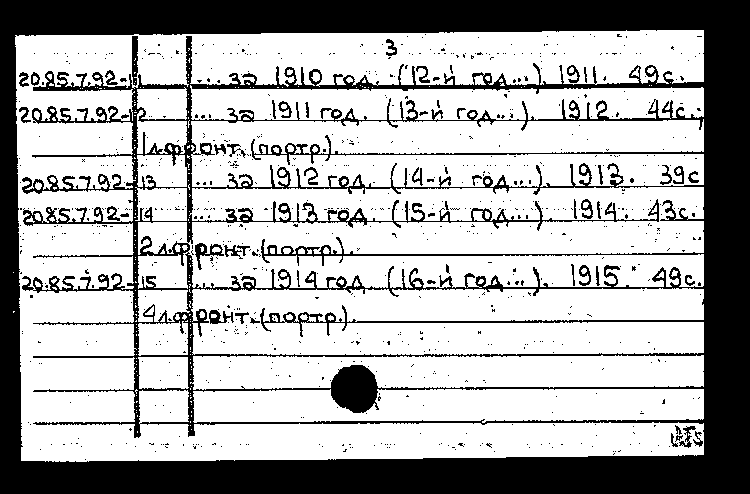 3
20.85.7.92-11 ... за 1910 год. (12-й год...). 1911. 49с.
20.85.7.92-12 ... за 1911 год. (13-й год...). 1912. 44с.;
1 л.фронт. (портр.).
20.85.7.92-13 ... за 1912 год. (14-й год...). 1913. 39с
20.85.7.92-14 ... за 1913 год. (15-й год...). 1914. 43с.
2 л.фронт. (портр.).
20.85.7.92-15 ... за 1914 год. (16-й год...). 1915. 49с.
4 л.фронт. (портр.).